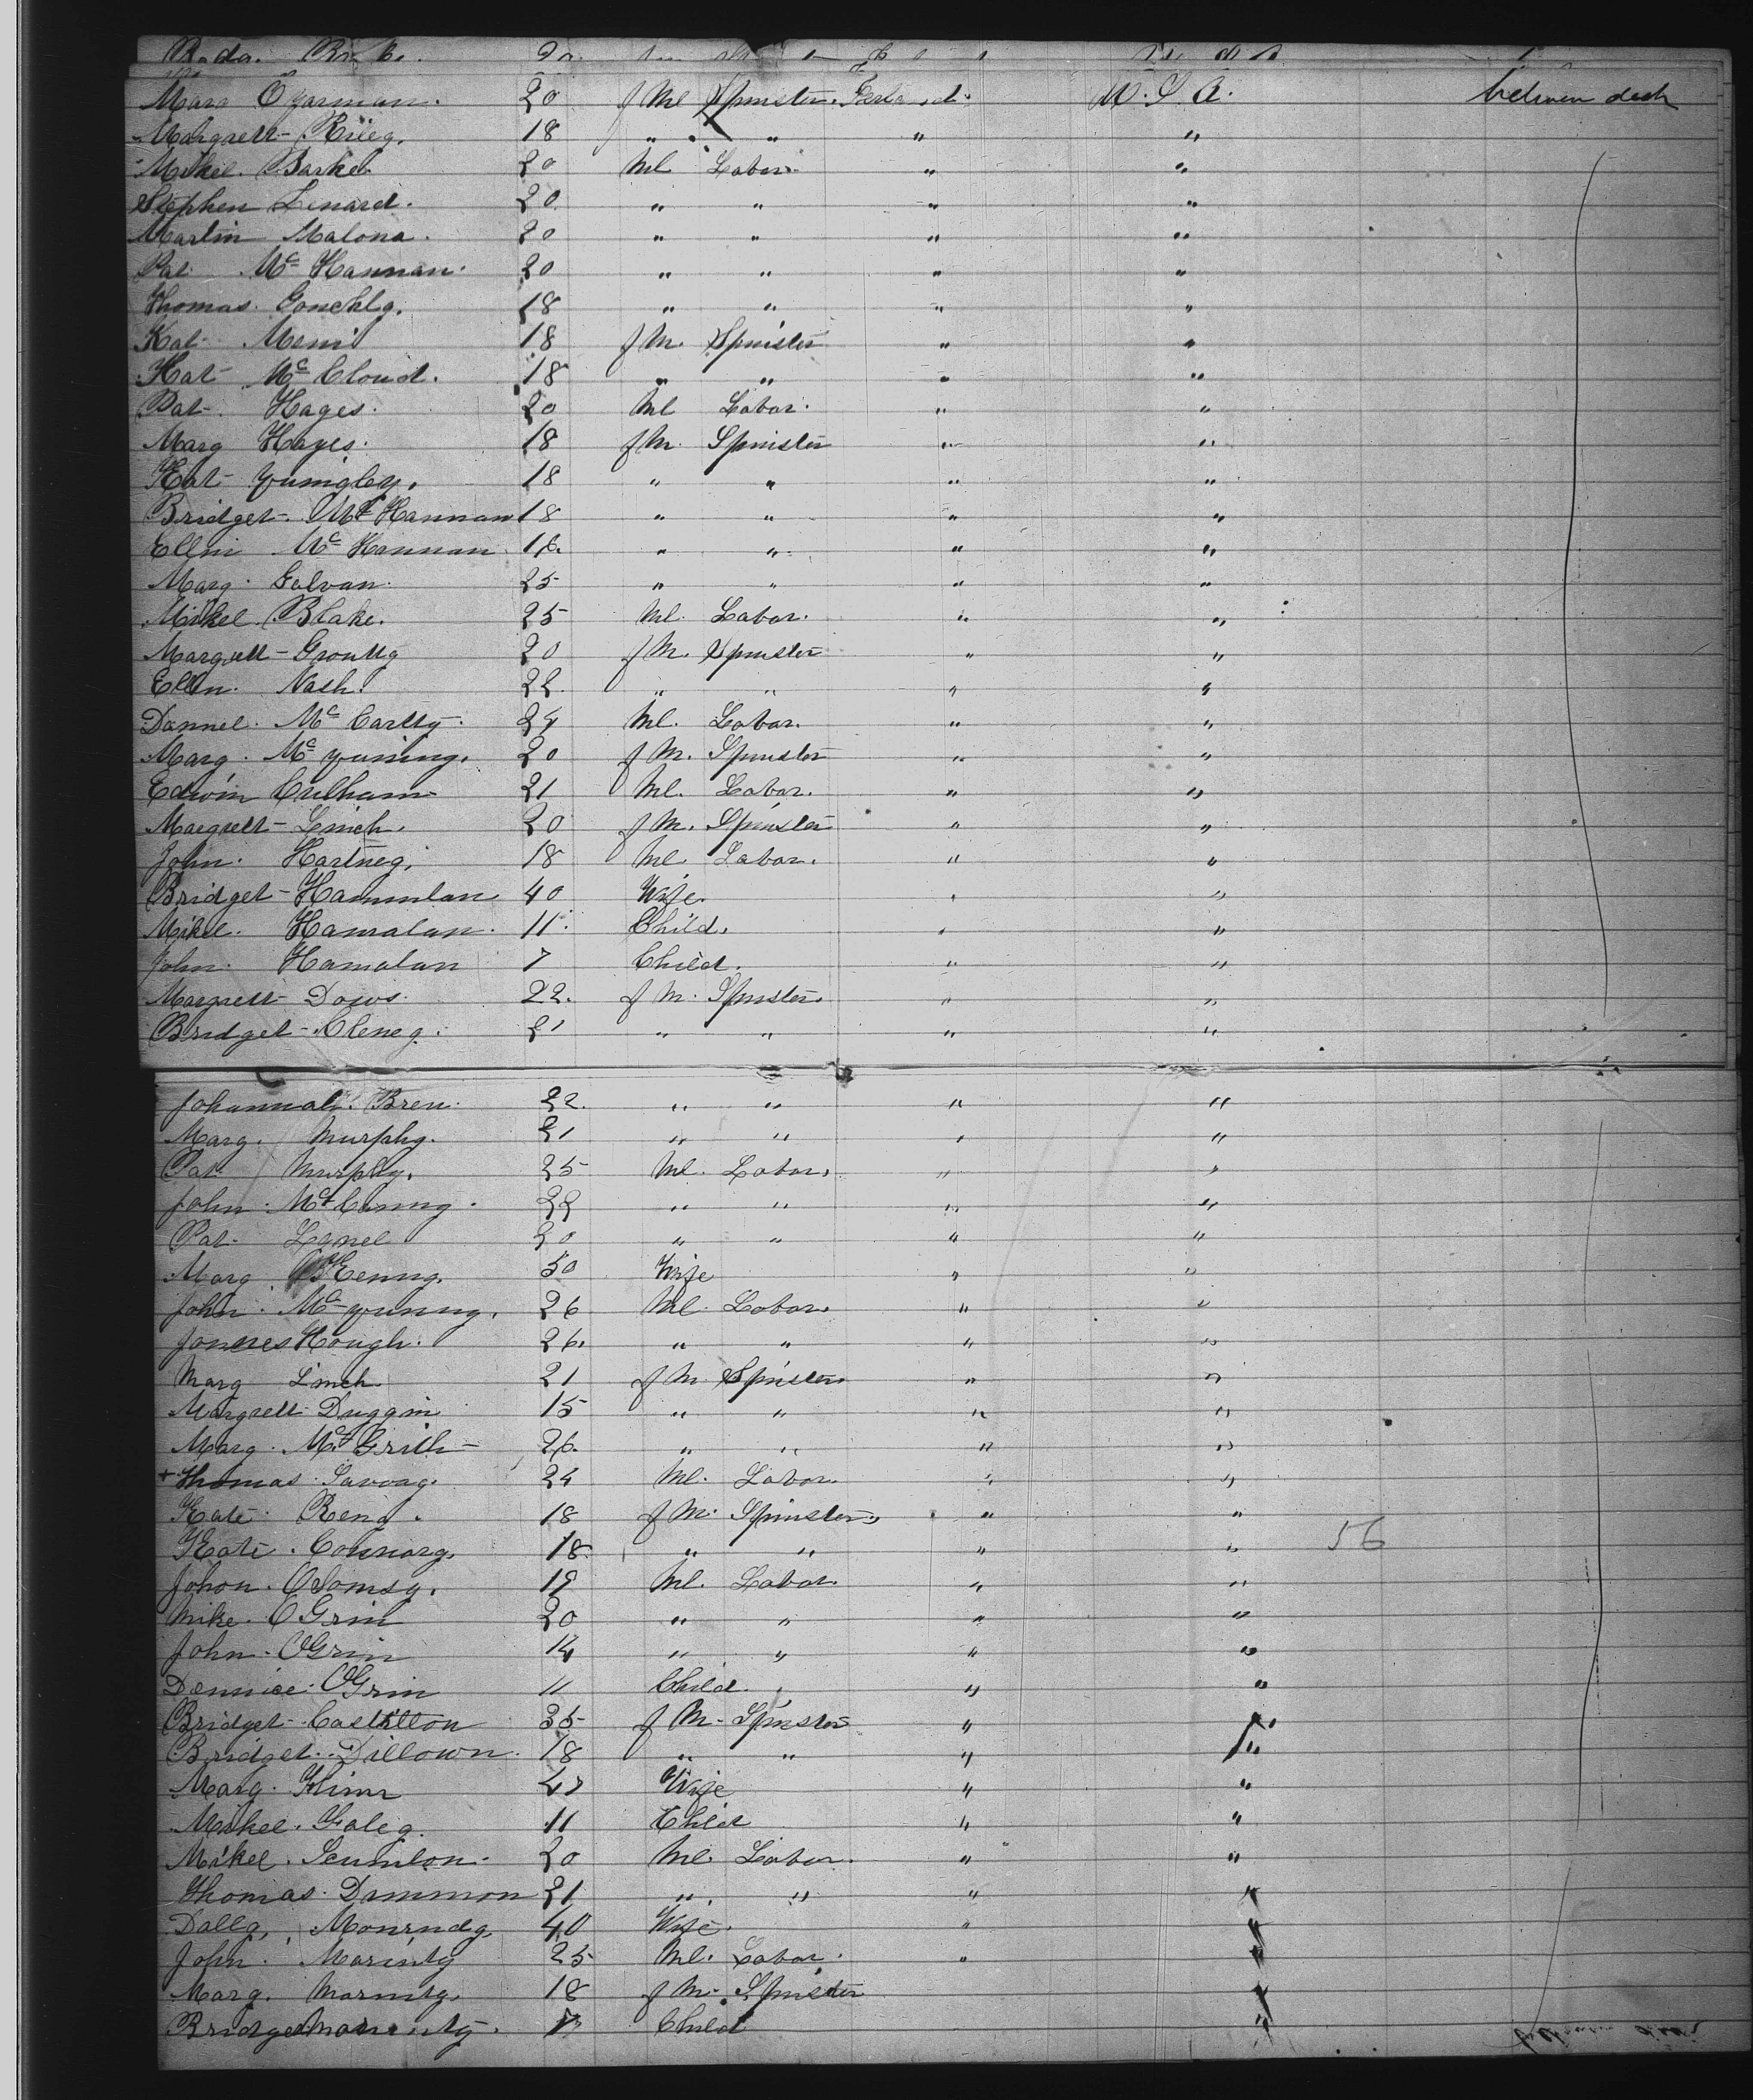 Mara Ogarman. 20 f Ml Spinster. Ireland. U.S.A. between deck
Margrett Riieg. 18 " " " "
Mikel. Barke. 20 Ml Labor. " "
Stephen Lenard. 20 " " " "
Martin Malona. 20 " " " "
Pat. Mc Hannan. 20 " " " "
Thomas. 18 " " " "
Kat 18 f M. Spinster " "
Kat Mc Cloud. 18 " " " "
Pat. Hages. 20 Ml Labor. " "
Marg Hayes. 18 f M. Spinster " "
Kat quinigley. 18 " " " "
Bridget. Mc Hannan 18 " " " "
Ellin Mc Hannan 16. " " " "
Marg. Galvan. 25 " " " "
Mikel. Blake. 25 Ml. Labor. " "
Margrett Grouttg 20 f M. Spinster " "
Ellin. Nash. 22. " " " "
Dannel. Mc Carttg. 24 Ml. Labor. " "
Marg. Mc quining. 20 f M. Spinster " "
Edwin Culham 21 Ml. Labor. " "
Margrett Linich. 20 f M. Spinster " "
John. Hartneg. 18 Ml. Labor. " "
Bridget Hammlan 40 Wife. " "
Mikel. Hamalan. 11. Child. " "
John. Hamalan 7 Child. " "
Margrett Dows. 22. f M. Spinster. " "
Bridget Cleneg. 21 " " " "
Johannah. Bren. 22. " " " "
Marg. Murphg. 21 " " " "
Pat Murphy. 25 Ml. Labor. " "
John. Mc 22 " " " "
Pat. Lgnel 20 " " " "
Marg Kenng. 50 Wife " "
John. Mc quining. 26 Ml. Labor. " "
James Hough. 26. " " " "
Marg Linch 21 f M. Spinster. " "
Margrett Duggin 15 " " " "
Marg. Mc Grith 26. " " " "
+ Thomas. Savvag. 24 Ml. Labor. " "
Kate. Reng. 18 f M. Spinster. " "
Kate. Connarg. 18. " " " " 56
Johon. OSomsg. 19 Ml. Labor. " "
Mike. OGrin 20 " " " "
John. OGrin 14 " " " "
Dennice. OGrin 11 Child. " "
Bridget Castillon 35 f M. Spinster " "
Bridget. Dillown. 18 " " " "
Marg. Wife " "
Mikel. Galeg. 11 Child " "
Mikel. Scunilon. 20 Ml. Labor. " "
Thomas. Dammon 21 " " " "
Dallg, 40 Wife. " "
John. Marintg 25 Ml. Labor. " "
Marg. Marintg. 18 f M. Spinster "
Bridget Marintg. 7 Child "